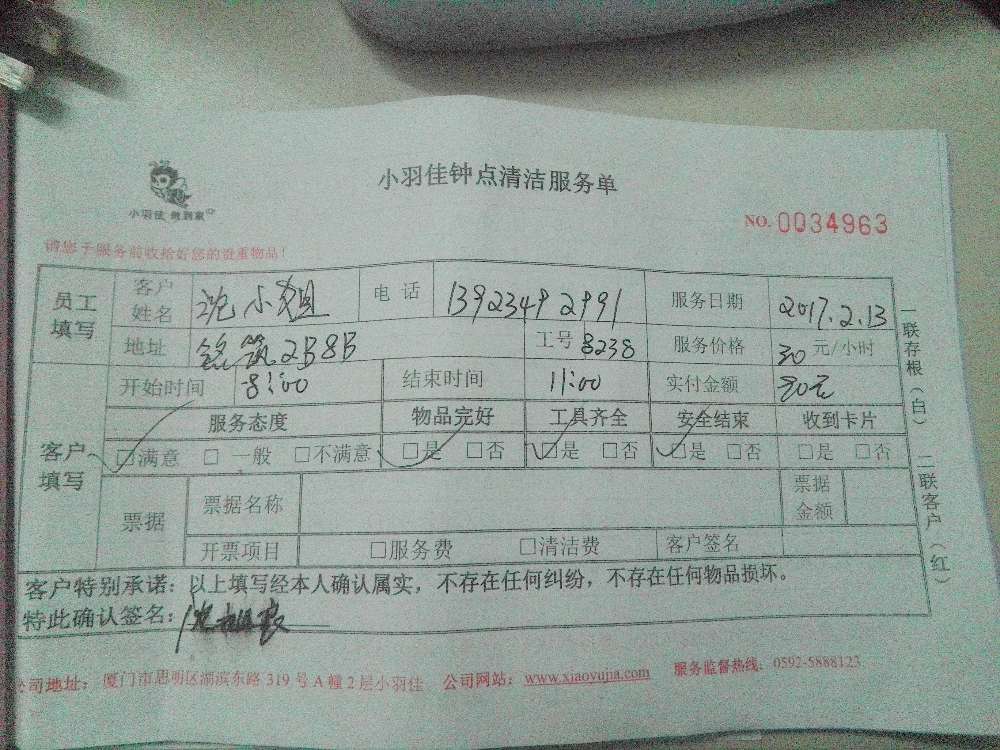 小羽佳钟点清洁服务单
小羽佳 做到家
NO. 0034963
请您于服务前收拾好您的贵重物品!
员工填写 客户姓名 沈小姐 电话 13923492991 服务日期 2017.2.13
地址 铭筑2B8B 工号 8238 服务价格 30 元/小时
客户填写 开始时间 8:00 结束时间 11:00 实付金额 90元
服务态度 物品完好 工具齐全 安全结束 收到卡片
□满意 □一般 □不满意 □是 □否 □是 □否 □是 □否 □是 □否
票据 票据名称 票据金额
开票项目 □服务费 □清洁费 客户签名
客户特别承诺：以上填写经本人确认属实，不存在任何纠纷，不存在任何物品损坏。
特此确认签名：
一联存根（白） 二联客户（红）
公司地址：厦门市思明区湖滨东路 319 号 A 幢 2 层小羽佳 公司网站：www.xiaoyujia.com 服务监督热线：0592-5888123